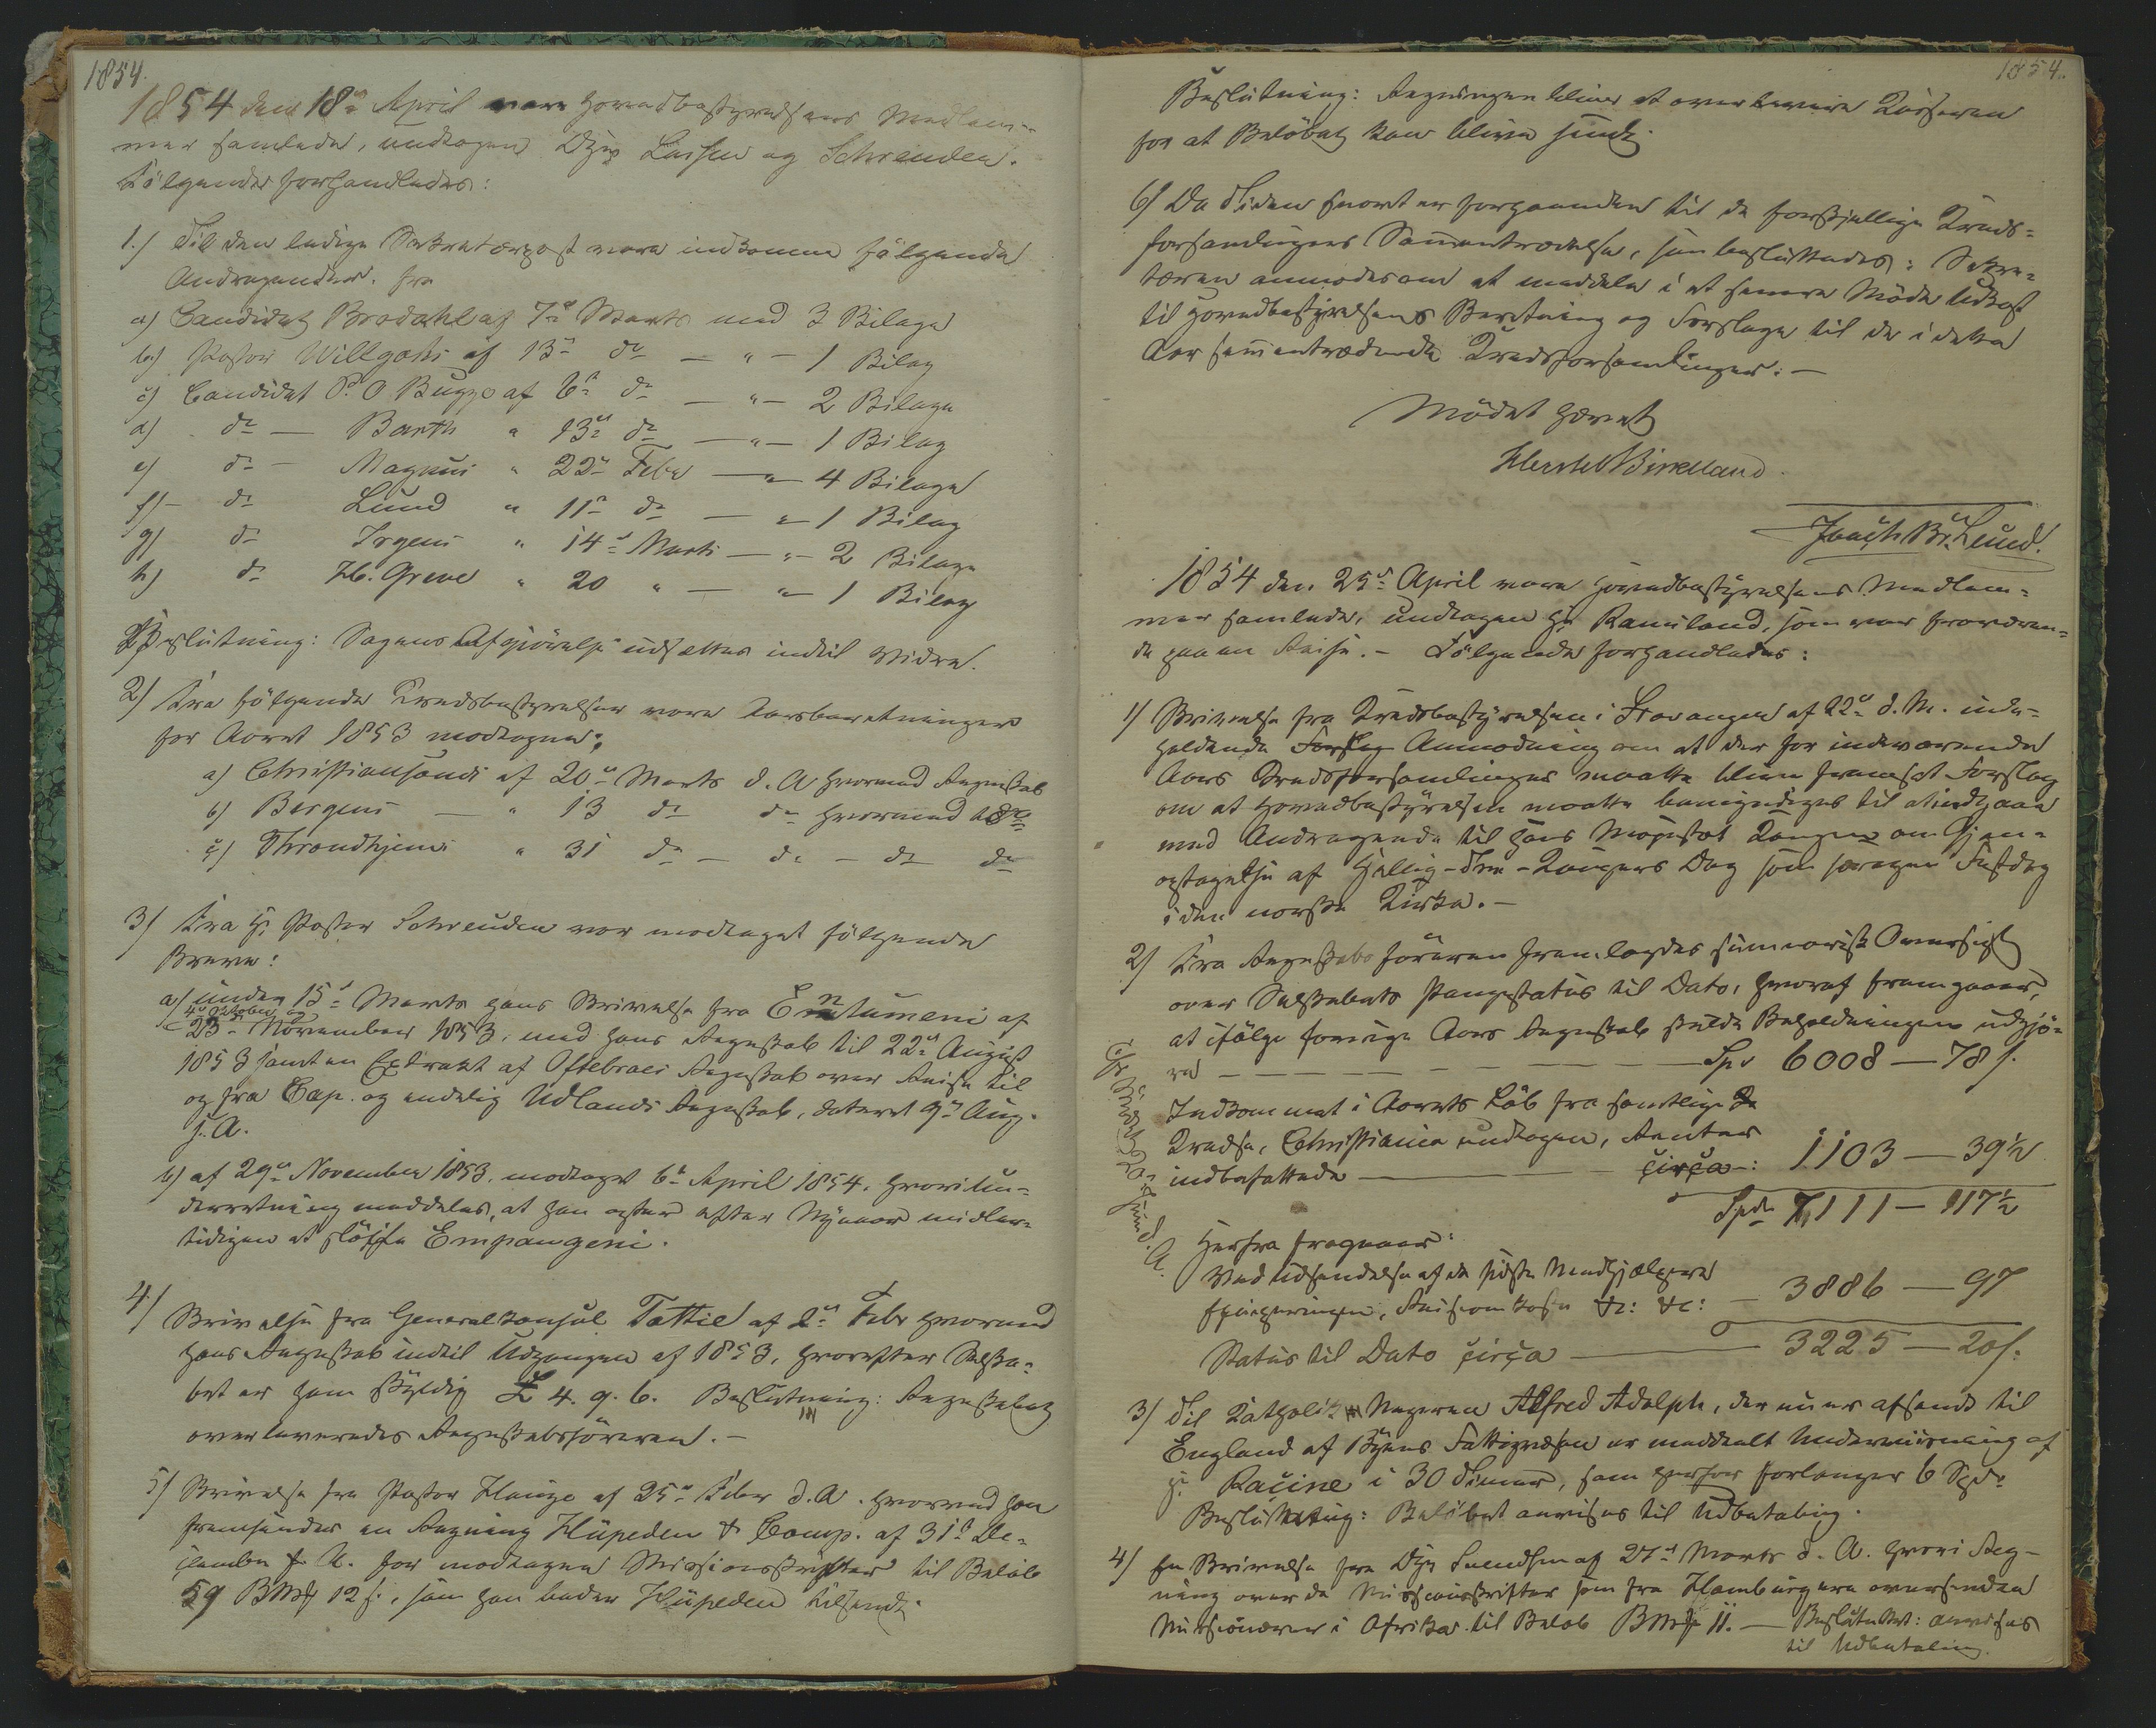 1854.
1854 den 18de April vare Hovedbestyrelsens Medlem-
mer samlede, undtagen DHrr Larsen og Schreuder.
Følgende forhandledes:
1.) Til den ledige Sekretærpost vare indkomne følgende
Andragender. fra
a) Candidat Brodahl af 7de Marts med 3 Bilage
b) Pastor Willgohs af 13de do — " — 1 Bilag
c) Candidat P. O Bugge af 6te do — " — 2 Bilage
d) do — Barth " 13de do — " — 1 Bilag
e) do — Magnus " 22de Febr — " — 4 Bilage
f) — do Lund " 11te do — " — 1 Bilag
g) do Irgens " 14de Marts — " — 2 Bilage
h) do Hb. Greve " 20 " — " — 1 Bilag
Beslutning: Sagens Afgjörelse udsættes indtil Videre.
2) Fra følgende Kredsbestyrelser vare Aarsberetninger
for Aaret 1853 modtagne:
a) Christiansands af 20de Marts d. A hvormed Regnskab
b) Bergens — " 13 do do hvormed do
c) Throndhjems " 31 do — do — do do
3) Fra Hr Pastor Schreuder var modtaget følgende
Breve:
a) under 15de Marts hans Skrivelse fra Entumeni af
4de Oktober og
23de November 1853, med hans Regnskab til 22de August
1853 samt en Extrakt af Oftebroes Regnskab over Reise til
og fra Cap. og endelig Udlands Regnskab, dateret 9de Aug.
s. A.
b) af 29de November 1853, modtaget 6te April 1854, hvori Un-
derretning meddeles, at han agter efter Nytaar midler-
tidigen at sløife Empangeni.
4) Skrivelse fra Generalkonsul Tottie af 2den Febr hvormed
hans Regnskab indtil Udgangen af 1853, hvorefter Selska-
bet er ham skyldig £ 4. 9. 6. Beslutning: Regnskabet
overleveredes Regnskabsføreren. —
5) Skrivelse fra Pastor Hauge af 25de Febr d. A. hvorved han
fremsender en Regning Hüpeden & Comp. af 31te De-
cember f. A. for modtagne Missionsskrifter til Beløb
59 BMk 12 s., som han beder Hüpeden tilsendt.
1854.
Beslutning: Regningen bliver at overlevere Kasseren
for at Beløbet kan blive sendt.
6) Da Tiden snart er forhaanden til de forskjellige Kreds-
forsamlingers Sammentrædelse, saa besluttedes: Sekre-
tæren anmodes om at meddele i et senere Møde Udkast
til Hovedbestyrelsens Beretning og Forslage til de i dette
Aar sammentrædende Kredsforsamlinger. —
Mödet hævet
Kjerstel Birkeland.
Joach. Br. Lund.
1854 den 25de April vare Hovedbestyrelsens Medlem-
mer samlede, undtagen Hr Ramsland, som var fraværen-
de paa en Reise. — Følgende forhandledes:
1) Skrivelse fra Kredsbestyrelsen i Stavanger af 22de d. M. inde-
holdende Forslag Anmodning om at der for indeværende
Aars Kredsforsamlinger maatte blive fremsat Forslag
om at Hovedbestyrelsen maatte bemyndiges til at indgaae
med Andragende til Hans Majestæt Kongen om Gjen-
optagelse af Hellig-Tre-Kongers Dag som særegen Festdag
i den norske Kirke. —
2) Fra Regnskabsføreren fremlagdes summarisk Oversigt
over Selskabets Pengestatus til Dato, hvoraf fremgaaer,
at ifølge forrige Aars Regnskab skulde Beholdningen udgjø-
re — — — — Spd 6008 — 78 s.
Indkommet i Aarets Løb fra samtlige
Kredse, Christiania undtagen, Renter
indbefattede — circa —: 1103 — 39½
Spd. 7,111 — 117½
Herfra fragaaer:
Ved Udsendelse af de sidste Medhjælpere
Equiperingen, Reiseomkostn. &c: &c: — 3886 — 97
Status til Dato circa — 3225 — 20 s.
3) Til Katholik Negeren Alfred Adolph, der nu er afsendt til
England af Byens Fattigvæsen er meddelt Underviisning af
Hr. Racine i 30 Timer, som herfor forlanger 6 Spd.
Beslutning: Beløbet anvises til Udbetaling.
4) En Skrivelse fra DHr Svendsen af 27de Marts d. A. hvori Reg-
ning over de Missionsskrifter som fra Hamburg ere oversendte
Missionærerne i Afrika til Beløb BMk 11. — Besluttet: anvises
til Udbetaling.